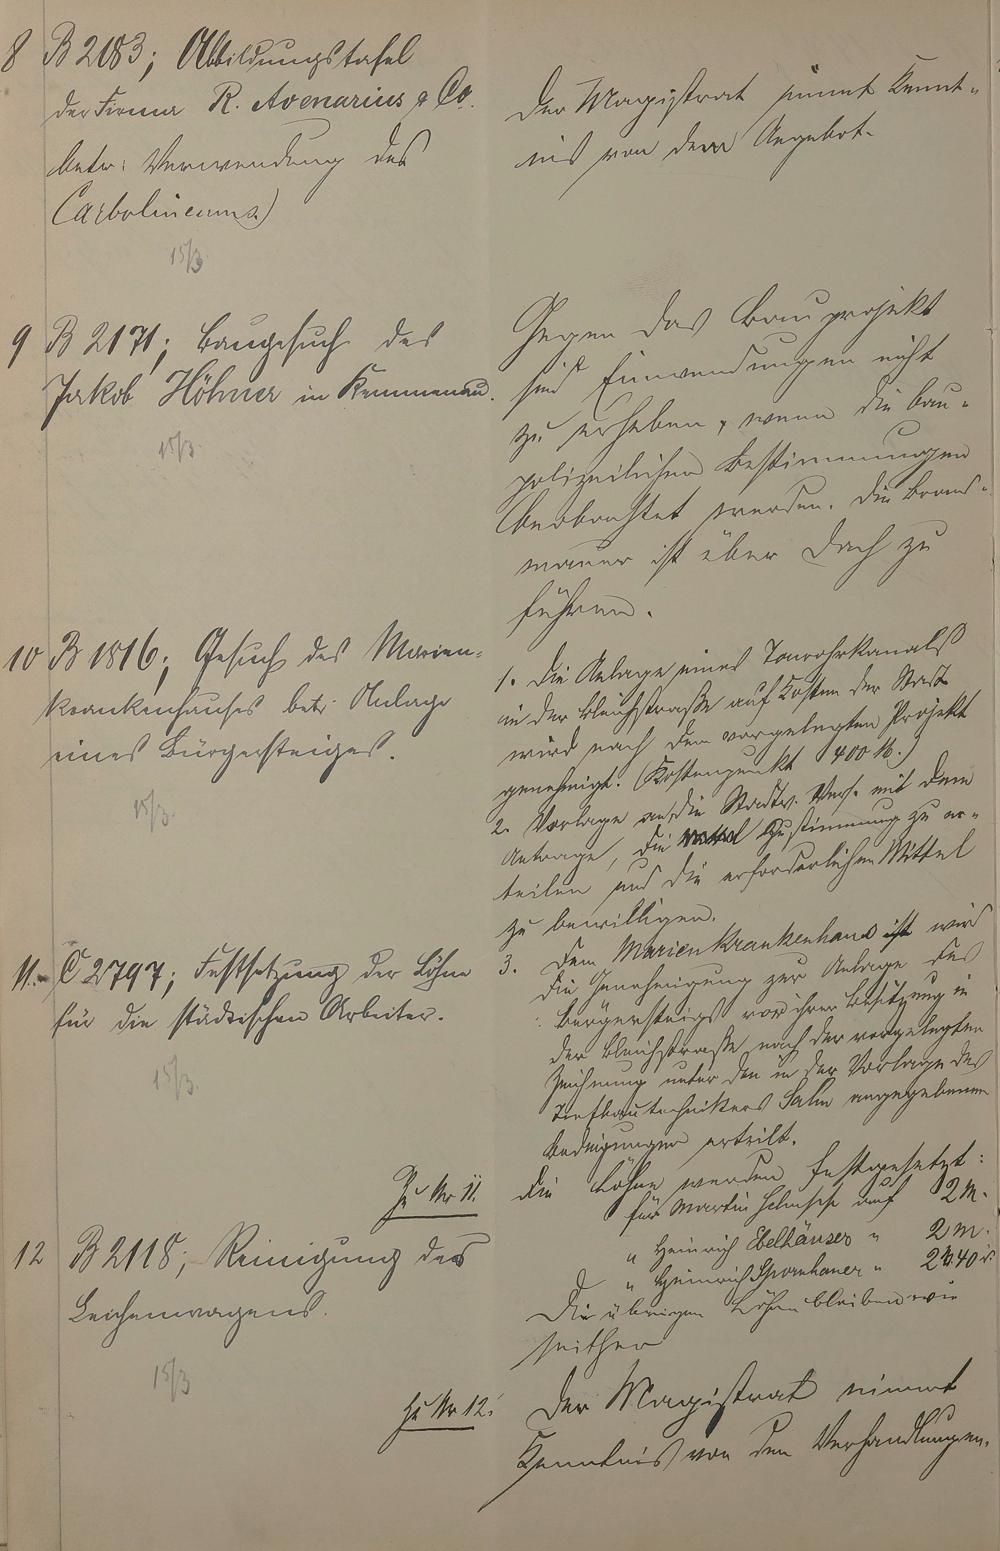 8 B 2183; Abbildungstafel
der Firma R. Avenarius & Co.
betr: Verwendung des
Carbolineums)
15/3
Der Magistrat nimmt Kennt-
nis von dem Angebot.
9 B 2171; Baugesuch des
Jakob Höhner in Kemmenau.
15/3.
Gegen das Bauprojekt
sind Einwendungen nicht
zu erheben, wenn die bau-
polizeilichen Bestimmungen
beobachtet werden. Die Brand-
mauer ist über Dach zu
führen.
10 B 1816; Gesuch des Marien-
krankenhauses betr. Anlage
eines Bürgersteiges.
15/3.
1. Die Anlage eines Tonrohrkanals
in der Bleichstraße auf Kosten der Stadt
wird nach dem vorgelegten Projekt
genehmigt. (Kostenpunkt 400 M.)
2. Vorlage an die Stadtv. Vers. mit dem
Antrage, die Zustimmung zu er-
teilen und die erforderlichen Mittel
zu bewilligen.
3. Dem Marienkrankenhaus ist wird
die Genehmigung zur Anlage des
Bürgersteigs vor ihrer Besitzung in
der Bleichstraße nach der vorgelegten
Zeichnung unter den in der Vorlage des
Tiefbautechnikers Salm angegebenen
Bedingungen erteilt.
11. C 2797; Festsetzung der Löhne
für die städtischen Arbeiter.
15/3.
Zu Nr 11.
Die Löhne werden festgesetzt:
für Martin auf 2 M.
" Heinrich Ebelhäuser " 2 M.
" Heinrich Spornhauer " 2 M. 40
Die übrigen Löhne bleiben wie
seither
12 B 2118; Reinigung des
Leichenwagens.
15/3
Zu Nr 12.
Der Magistrat nimmt
Kenntnis von den Verhandlungen.